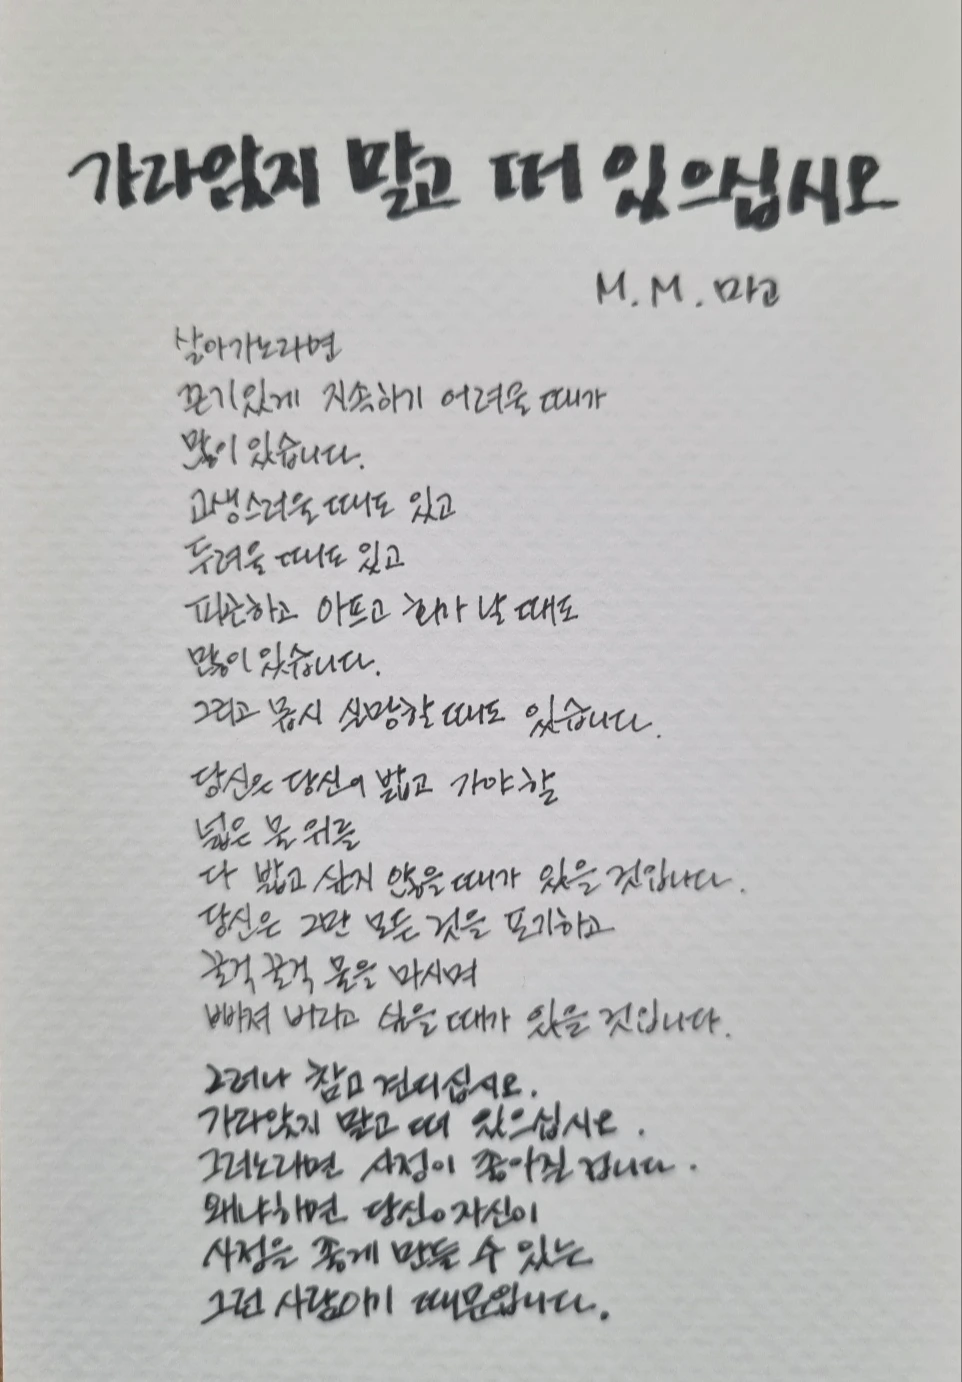 가라앉지 말고 떠 있으십시오
M. M. 마고
살아가노라면
끈기있게 지속하기 어려울 때가
많이 있습니다.
고생스러울 때도 있고
두려울 때도 있고
피곤하고 아프고 화가 날 때도
많이 있습니다.
그리고 몹시 실망할 때도 있습니다.
당신은 당신이 밟고 가야 할
넓은 물 위를
다 밟고 싶지 않을 때가 있을 것입니다.
당신은 그만 모든 것을 포기하고
꿀걱꿀걱 물을 마시며
빠져 버리고 싶을 때가 있을 것입니다.
그러나 참고 견디십시오.
가라앉지 말고 떠 있으십시오.
그러노라면 사정이 좋아질 겁니다.
왜냐하면 당신이 자신이
사정을 좋게 만들 수 있는
그런 사람이기 때문입니다.